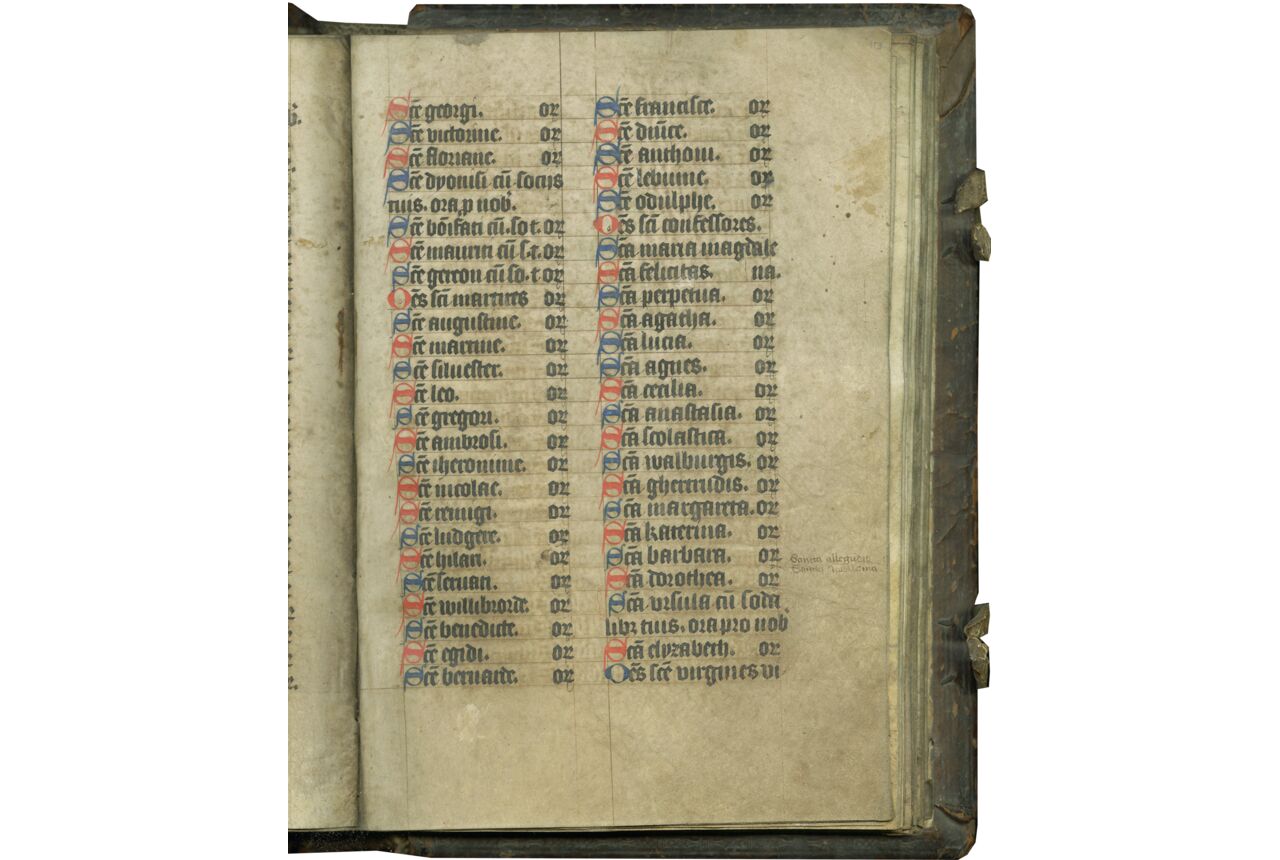 Scē georgi. or
Scē victorine. or
Scē floriane. or
Scē dyonisi cū sociis
tuis. ora p nob.
Scē bōifati cū. so t. or
Scē mauriti cū s. t. or
Scē gereon cū so. t or
Oēs sci martires or
Scē augustine. or
Scē martine. or
Scē siluester. or
Scē leo. or
Scē gregori. or
Scē ambrosi. or
Scē iheronime. or
Scē nicolae. or
Scē remigi. or
Scē ludgere. or
Scē hilari. or
Scē seruati. or
Scē willibrorde. or
Scē benedicte. or
Scē egidi. or
Scē bernarde. or
Scē francisce. or
Scē dnīce. or
Scē anthoni. or
Scē lebuine. or
Scē odulphe. or
Oēs sci confessores.
Scā maria magdale
Scā felicitas. na.
Scā perpetua. or
Scā agatha. or
Scā lucia. or
Scā agnes. or
Scā cecilia. or
Scā anastasia. or
Scā scolastica. or
Scā walburgis. or
Scā ghertrudis. or
Scā margareta. or
Scā katerina. or
Scā barbara. or
Scā dorothea. or
Scā vrsula cū soda
libꝫ tuis. ora pro nob
Scā elyzabeth. or
Oēs scē virgines vi
Sancta
Sancta